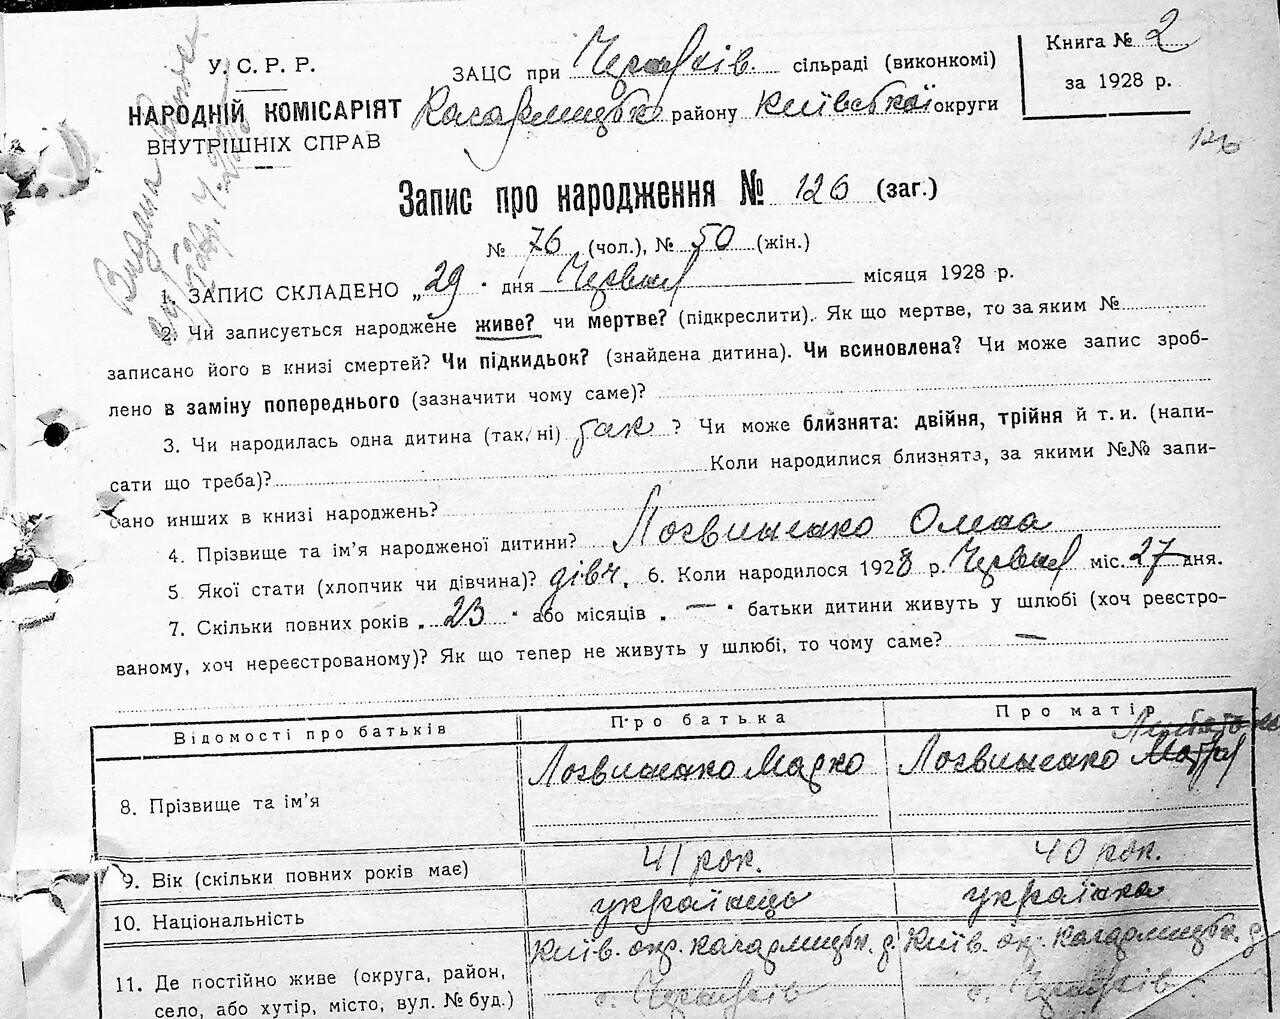 У. С. Р. Р.
НАРОДНІЙ КОМІСАРІЯТ
ВНУТРІШНІХ СПРАВ
ЗАЦС при сільраді (виконкомі)
Кагарлицьк. району Київської округи
Книга № 2
за 1928 р.
126
Запис про народження № 126 (заг.)
№ 76 (чол.), № 50 (жін.)
1. ЗАПИС СКЛАДЕНО „29" дня Червня місяця 1928 р.
2. Чи записується народжене живе? чи мертве? (підкреслити). Як що мертве, то за яким №
записано його в книзі смертей? Чи підкидьок? (знайдена дитина). Чи всиновлена? Чи може запис зроб-
лено в заміну попереднього (зазначити чому саме)?
3. Чи народилась одна дитина (так, ні) так ? Чи може близнята: двійня, трійня й т. и. (напи-
сати що треба)? Коли народилися близнята, за якими №№ запи-
сано инших в книзі народжень?
4. Прізвище та ім'я народженої дитини? Логвиненко Олена
5. Якої стати (хлопчик чи дівчина)? дівч. 6. Коли народилося 1928 р. Червня міс. 27 дня.
7. Скільки повних років „23" або місяців „—" батьки дитини живуть у шлюбі (хоч реєстро-
ваному, хоч нереєстрованому)? Як що тепер не живуть у шлюбі, то чому саме? —
Відомості про батьків Про батька Про матір
8. Прізвище та ім'я Логвиненко Марко Логвиненко
9. Вік (скільки повних років має) 41 рок. 40 рок.
10. Національність українець українка
11. Де постійно живе (округа, район, Київ. окр. Кагарлицьк. р. Київ. окр. Кагарлицьк. р.
село, або хутір, місто, вул. № буд.) с. с.